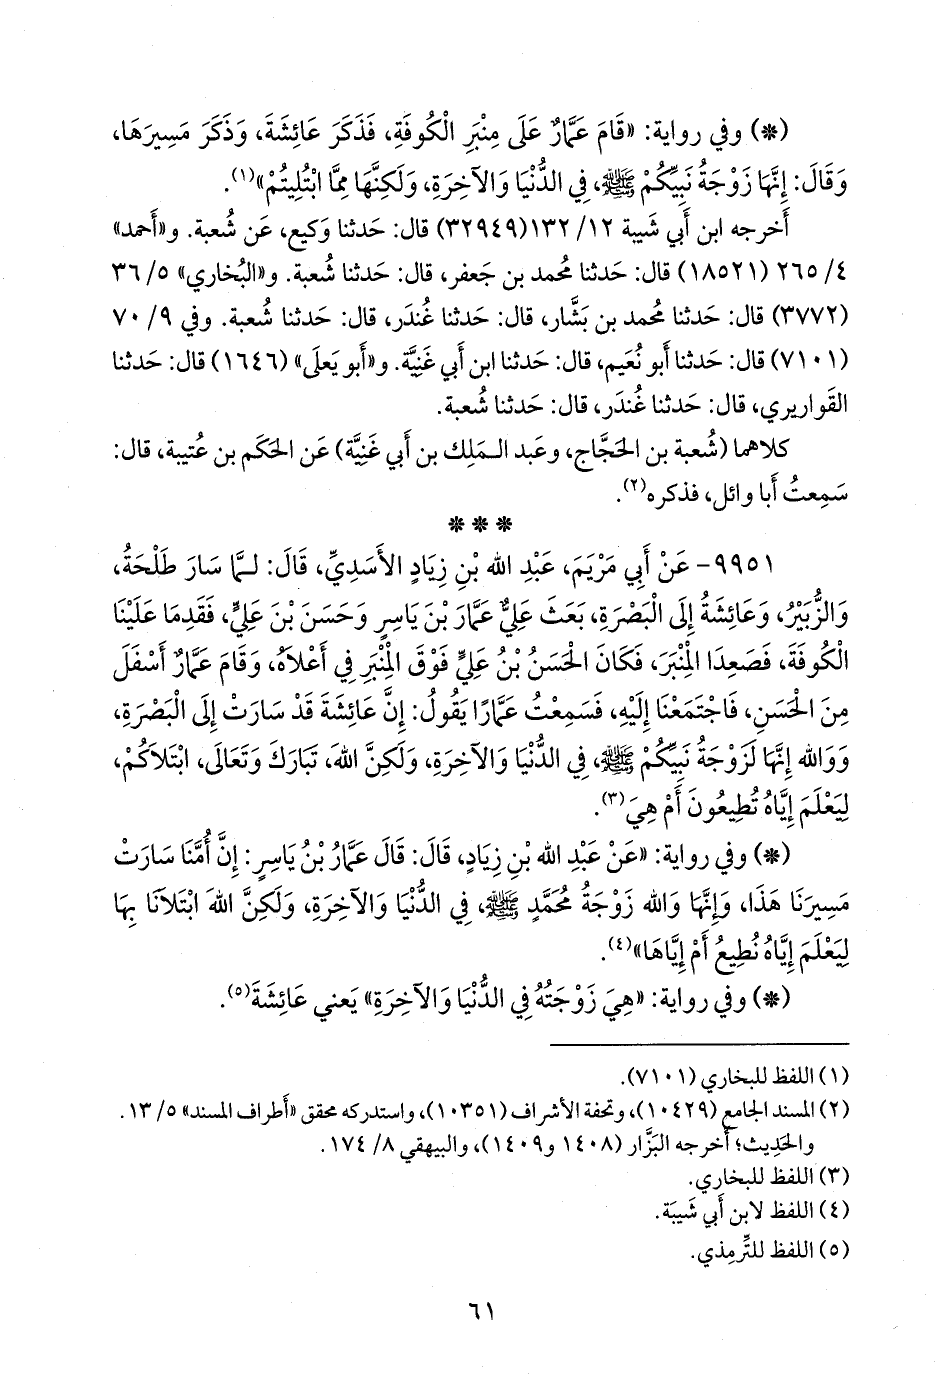 (*) وفي رواية: «قَامَ عَمَّارٌ عَلَى مِنْبَرِ الْكُوفَةِ، فَذَكَرَ عَائِشَةَ، وَذَكَرَ مَسِيرَهَا،
وَقَالَ: إِنَّهَا زَوْجَةُ نَبِيِّكُمْ ﷺ، فِي الدُّنْيَا وَالآخِرَةِ، وَلَكِنَّهَا مِمَّا ابْتُلِيتُمْ»(١).
أَخرجه ابن أَبي شَيبة ١٢/ ١٣٢(٣٢٩٤٩) قال: حَدثنا وَكيع، عَن شُعبة. و«أَحمد»
٤/ ٢٦٥ (١٨٥٢١) قال: حَدثنا مُحمد بن جَعفر، قال: حَدثنا شُعبة. و«البُخاري» ٥/ ٣٦
(٣٧٧٢) قال: حَدثنا مُحمد بن بَشَّار، قال: حَدثنا غُندَر، قال: حَدثنا شُعبة. وفي ٩/ ٧٠
(٧١٠١) قال: حَدثنا أَبو نُعيم، قال: حَدثنا ابن أَبي غَنِيَّة. و«أَبو يَعلَى» (١٦٤٦) قال: حَدثنا
القَواريري، قال: حَدثنا غُندَر، قال: حَدثنا شُعبة.
كلاهما (شُعبة بن الحَجَّاج، وعَبد الـمَلِك بن أَبي غَنِيَّة) عَن الحَكَم بن عُتيبة، قال:
سَمِعتُ أَبا وائل، فذكره(٢).
* * *
٩٩٥١- عَنْ أَبِي مَرْيَمَ، عَبْدِ الله بْنِ زِيَادٍ الأَسَدِيِّ، قَالَ: لـمَّا سَارَ طَلْحَةُ،
وَالزُّبَيْرُ، وَعَائِشَةُ إِلَى الْبَصْرَةِ، بَعَثَ عَلِيٌّ عَمَّارَ بْنَ يَاسِرٍ وَحَسَنَ بْنَ عَلِيٍّ، فَقَدِمَا عَلَيْنَا
الْكُوفَةَ، فَصَعِدَا المِنْبَرَ، فَكَانَ الحَسَنُ بْنُ عَلِيٍّ فَوْقَ المِنْبَرِ فِي أَعْلاَهُ، وَقَامَ عَمَّارٌ أَسْفَلَ
مِنَ الحَسَنِ، فَاجْتَمَعْنَا إِلَيْهِ، فَسَمِعْتُ عَمَّارًا يَقُولُ: إِنَّ عَائِشَةَ قَدْ سَارَتْ إِلَى الْبَصْرَةِ،
وَوَالله إِنَّهَا لَزَوْجَةُ نَبِيِّكُمْ ﷺ، فِي الدُّنْيَا وَالآخِرَةِ، وَلَكِنَّ اللهَ، تَبَارَكَ وَتَعَالَى، ابْتَلاَكُمْ،
لِيَعْلَمَ إِيَّاهُ تُطِيعُونَ أَمْ هِيَ(٣).
(*) وفي رواية: «عَنْ عَبْدِ الله بْنِ زِيَادٍ، قَالَ: قَالَ عَمَّارُ بْنُ يَاسِرٍ: إِنَّ أُمَّنَا سَارَتْ
مَسِيرَنَا هَذَا، وَإِنَّهَا وَالله زَوْجَةُ مُحَمَّدٍ ﷺ، فِي الدُّنْيَا وَالآخِرَةِ، وَلَكِنَّ اللهَ ابْتَلاَنَا بِهَا
لِيَعْلَمَ إِيَّاهُ نُطِيعُ أَمْ إِيَّاهَا»(٤).
(*) وفي رواية: «هِيَ زَوْجَتُهُ فِي الدُّنْيَا وَالآخِرَةِ» يَعني عَائِشَةَ(٥).
(١) اللفظ للبخاري (٧١٠١).
(٢) المسند الجامع (١٠٤٢٩)، وتحفة الأشراف (١٠٣٥١)، واستدركه محقق «أَطراف المسند» ٥/ ١٣.
والحَدِيث؛ أَخرجه البَزَّار (١٤٠٨ و١٤٠٩)، والبيهقي ٨/ ١٧٤.
(٣) اللفظ للبخاري.
(٤) اللفظ لابن أَبي شَيبَة.
(٥) اللفظ للتِّرمِذي.
٦١